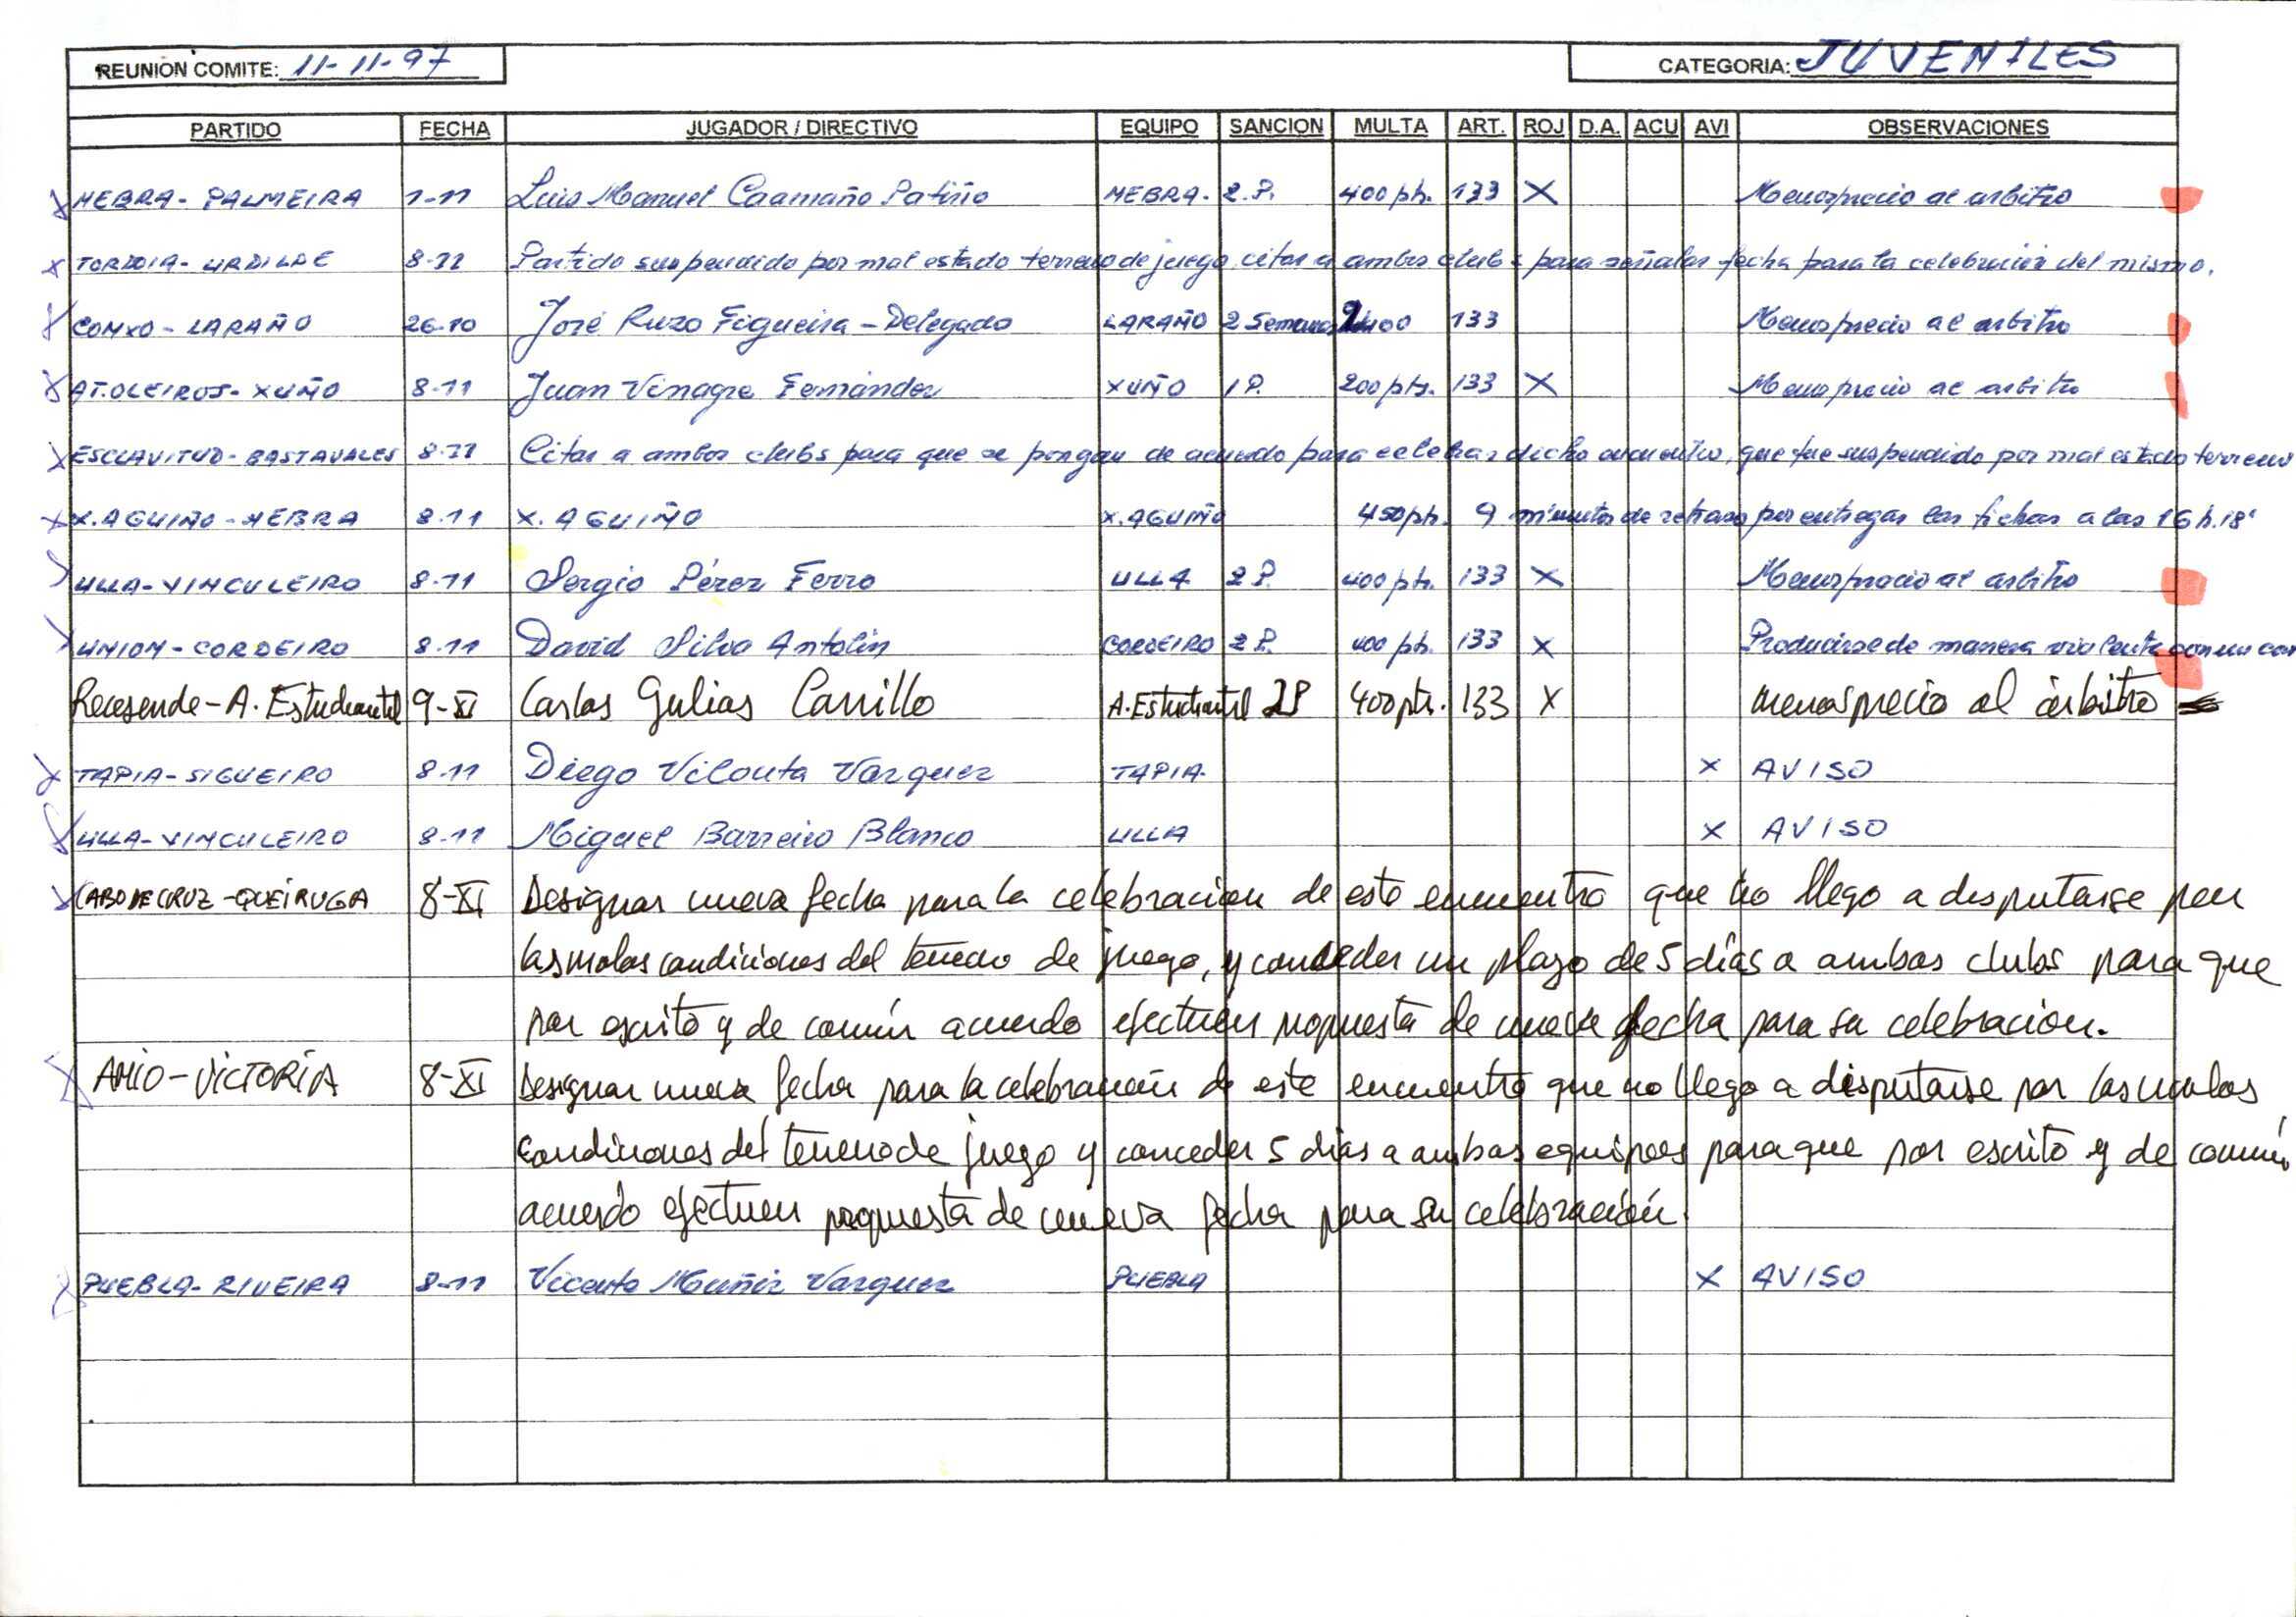 REUNIÓN COMITE: 11-11-97 CATEGORIA: JUVENILES
PARTIDO FECHA JUGADOR / DIRECTIVO EQUIPO SANCION MULTA ART. ROJ D.A. ACU AVI OBSERVACIONES
X HEBRA - PALMEIRA 1-11 Luis Manuel Caamaño Patiño HEBRA. 2 P. 400 pts. 133 X Menosprecio al arbitro
X TORDOIA - URDILDE 8-11 Partido suspendido por mal estado terreno de juego, citar a ambos clubs para señalar fecha para la celebración del mismo.
X CONXO - LARAÑO 26-10 José Ruzo Figueira - Delegado LARAÑO 2 Semanas 133 Menosprecio al arbitro
X AT. OLEIROS - XUÑO 8-11 Juan Vinagre Fernández XUÑO 1 P. 200 pts. 133 X Menosprecio al arbitro
X ESCLAVITUD - BASTAVALES 8-11 Citar a ambos clubs para que se pongan de acuerdo para celebrar dicho encuentro, que fue suspendido por mal estado terreno
X X. AGUIÑO - HEBRA 8-11 X. AGUIÑO X. AGUIÑO 450 pts. 9 minutos de retraso por entregar las fichas a las 16 h. 18'
X ULLA - VINCULEIRO 8-11 Sergio Pérez Ferro ULLA 2 P. 400 pts. 133 X Menosprecio al arbitro
X UNION - CORDEIRO 8-11 David Silva Antolín CORDEIRO 2 P. 400 pts. 133 X Producirse de manera violenta con un con
Recesende - A. Estudiantil 9-XI Carlos Gulias Carrillo A. Estudiantil 2P 400 pts. 133 X menosprecio al árbitro
X TAPIA - SIGUEIRO 8-11 Diego Vilouta Vazquez TAPIA. X AVISO
X ULLA - VINCULEIRO 8-11 Miguel Barreiro Blanco ULLA X AVISO
X CABO DE CRUZ - QUEIRUGA 8-XI Designar nueva fecha para la celebracion de este encuentro que no llego a disputarse por
las malas condiciones del terreno de juego, y conceder un plazo de 5 días a ambos clubs para que
por escrito y de común acuerdo efectuen propuesta de nueva fecha para su celebracion.
X AMIO - VICTORIA 8-XI Designar nueva fecha para la celebración de este encuentro que no llego a disputarse por las malas
condiciones del terreno de juego y conceder 5 días a ambos equipos para que por escrito y de común
acuerdo efectuen propuesta de nueva fecha para su celebración.
X PUEBLA - RIVEIRA 8-11 Vicente Muñiz Vazquez PUEBLA X AVISO